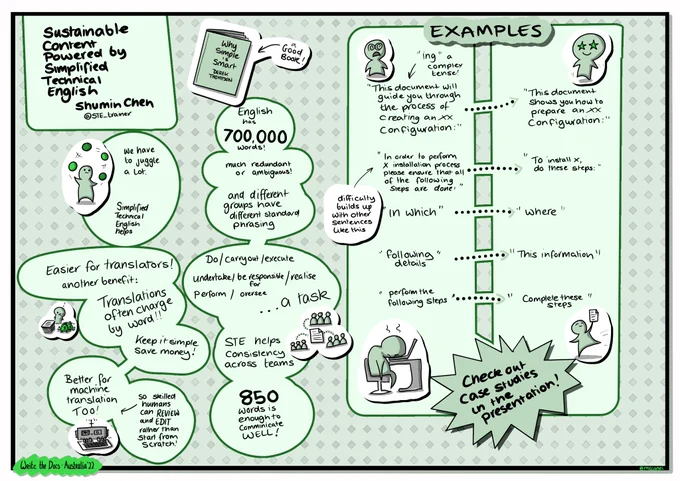 Sustainable
Content
Powered by
Simplified
Technical
English
Shumin Chen
@STE_trainer
We have
to juggle
a Lot.
Simplified
Technical
English
helps
Easier for translators!
another benefit:
Translations
often charge
by word!!
Keep it simple
Save money!
Better for
machine
translation
TOO!
So skilled
humans
can REVIEW
and EDIT
rather than
Start from
Scratch!
Why
Simple
is
Smart
DEREK
THOMPSON
a
Good
Book!
English
has
700,000
words!
much redundant
or ambiguous!
and different
groups have
different standard
phrasing
Do/carry out/execute
undertake/be responsible for/realise
Perform / oversee
...a task
STE helps
Consistency
across teams
850
words is
enough to
Communicate
WELL!
EXAMPLES
"ing" a
complex
tense!
"This document will
guide you through
the process of
creating an XX
Configuration:"
"This document
Shows you how to
prepare an XX
Configuration:"
"In order to perform
X installation process
please ensure that all
of the following
Steps are done:"
"To install X,
do these steps:"
difficulty
builds up
with other
Sentences
like this
"In which"
"where"
"following"
details
"This information"
"perform the
following steps"
"Complete these"
steps
Check out
case studies
in the
presentation!
Write the Docs Australia 22